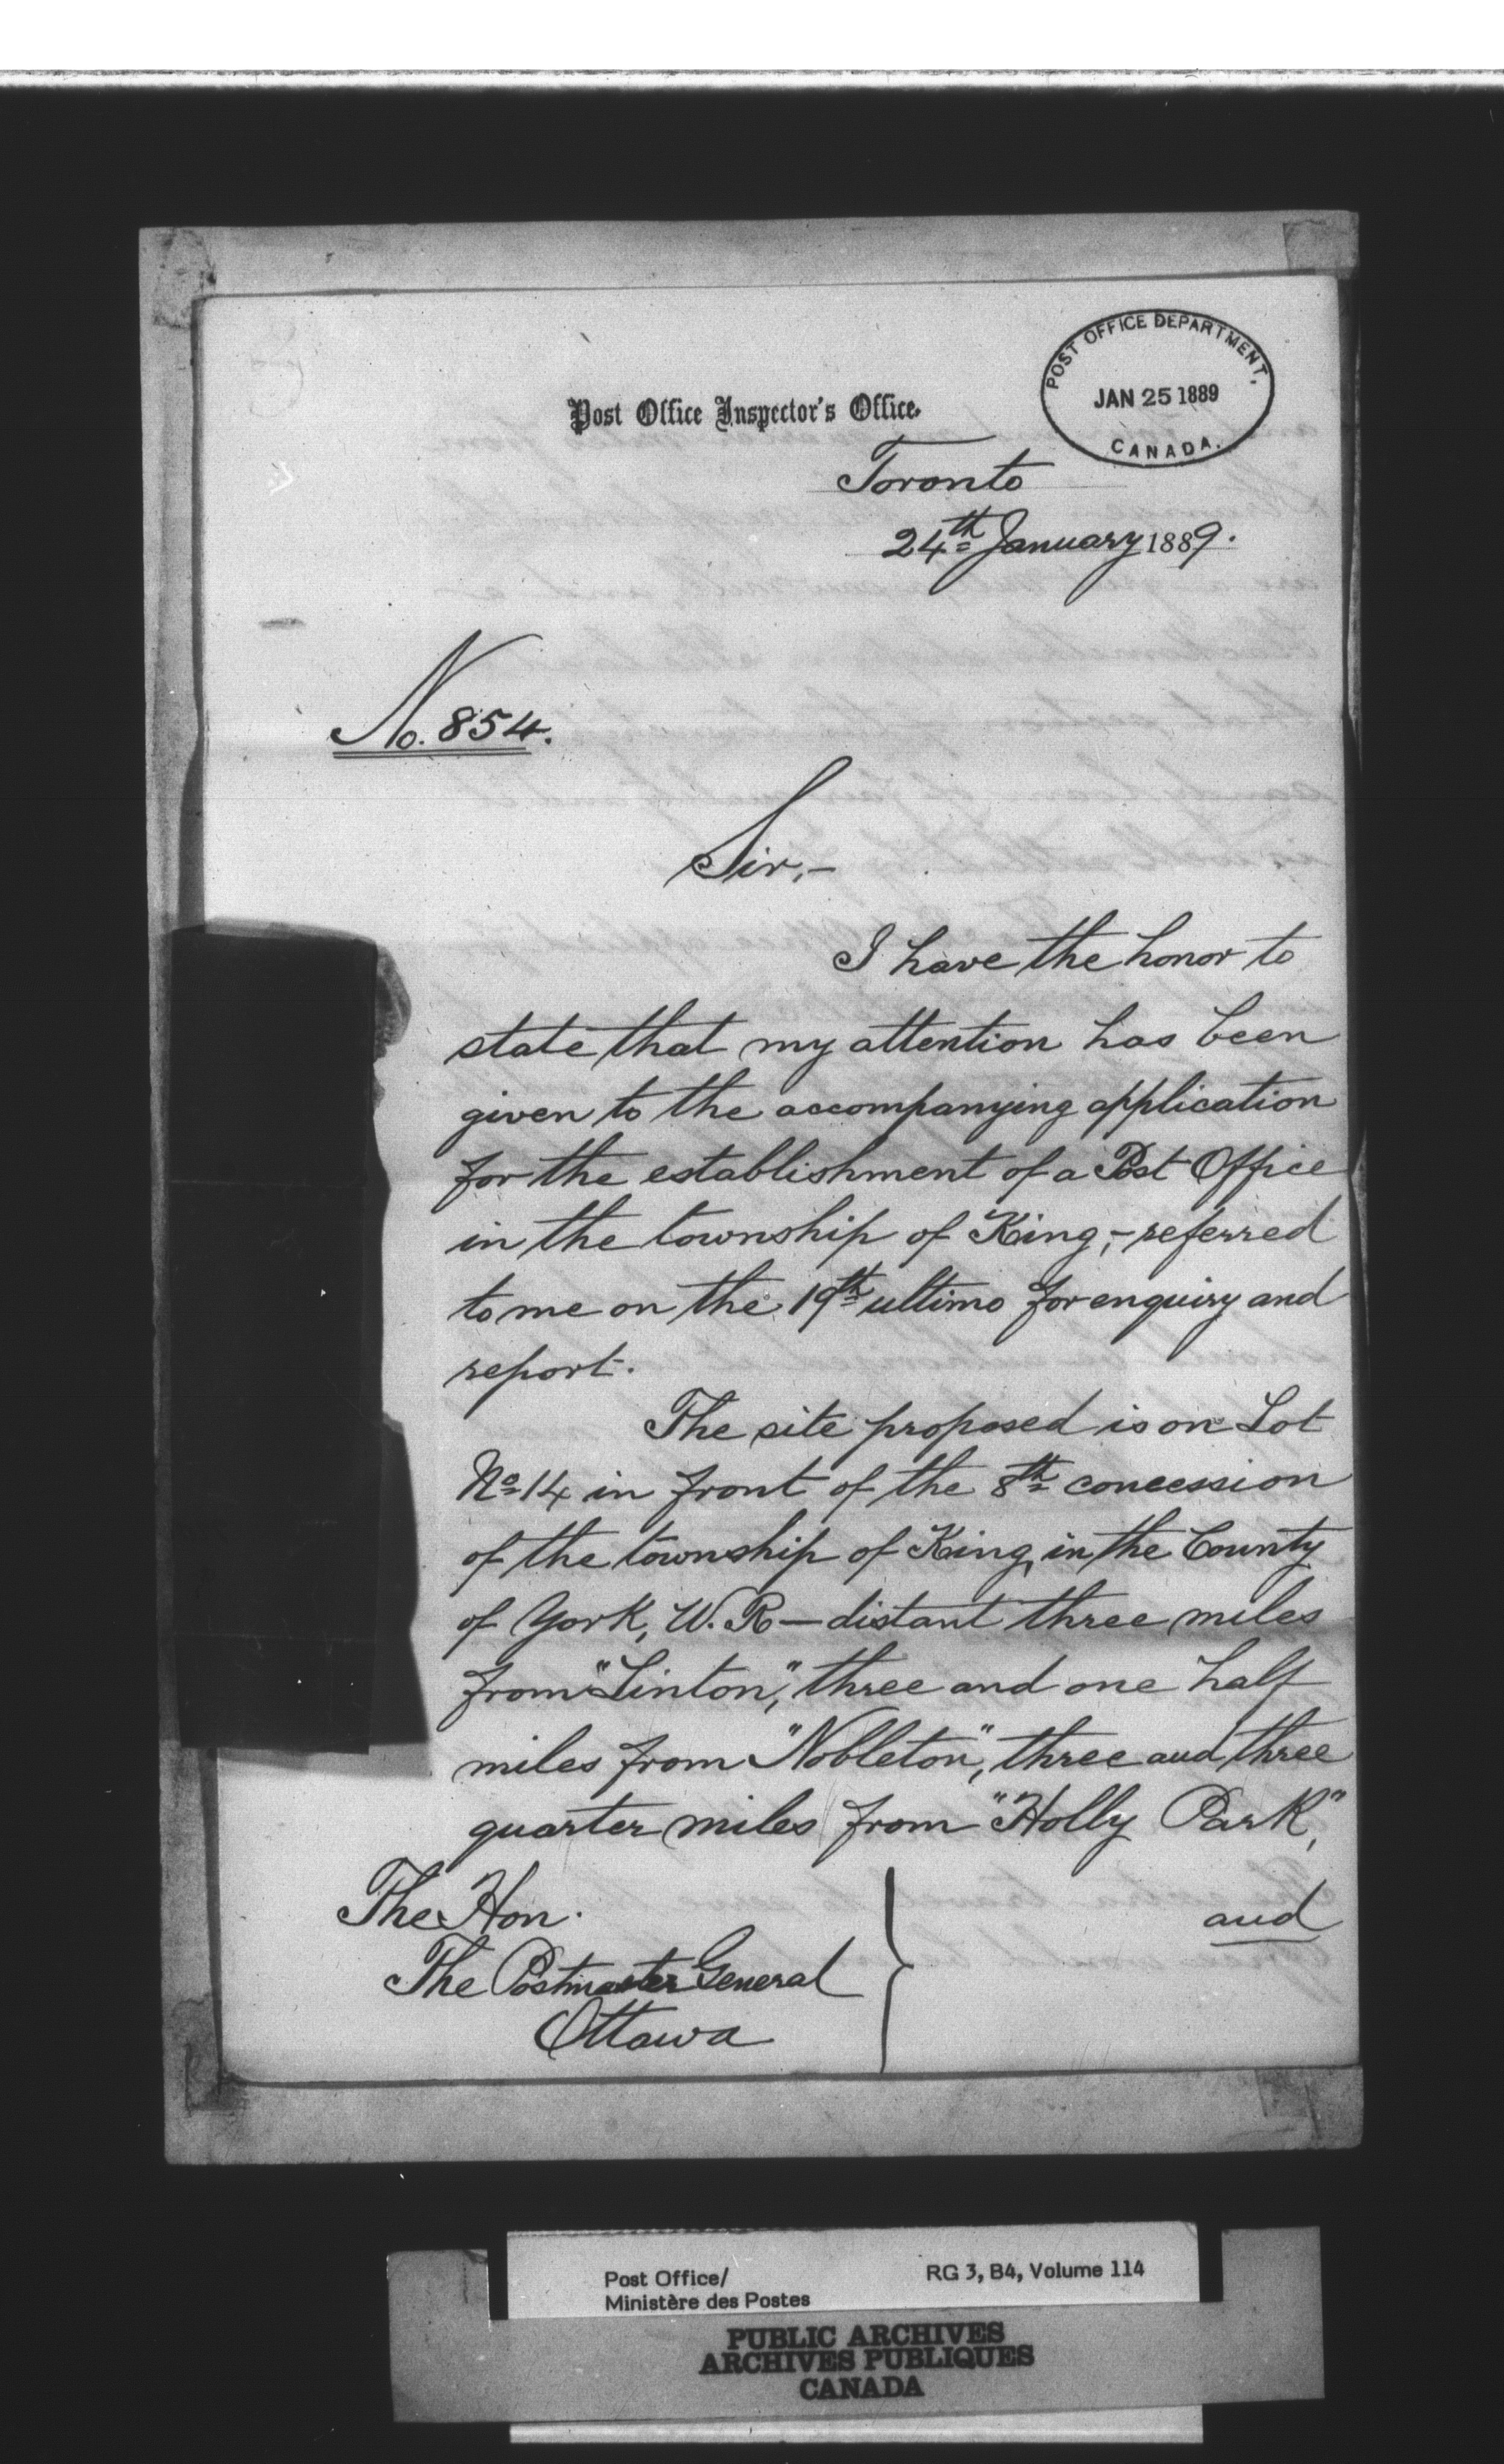 POST OFFICE DEPARTMENT,
JAN 25 1889
CANADA.
Post Office Inspector's Office.
Toronto
24th January 1889.
No. 854.
Sir,-
I have the honor to
state that my attention has been
given to the accompanying application
for the establishment of a Post Office
in the township of King,-referred
to me on the 19th ultimo for enquiry and
report.
The site proposed is on Lot
No 14 in front of the 8th concession
of the township of King, in the County
of York, W. R - distant three miles
from "Linton," three and one half
miles from "Nobleton", three and three
quarter miles from "Holly Park",
and
The Hon.
The Postmaster General
Ottawa
Post Office/
Ministère des Postes
RG 3, B4, Volume 114
PUBLIC ARCHIVES
ARCHIVES PUBLIQUES
CANADA